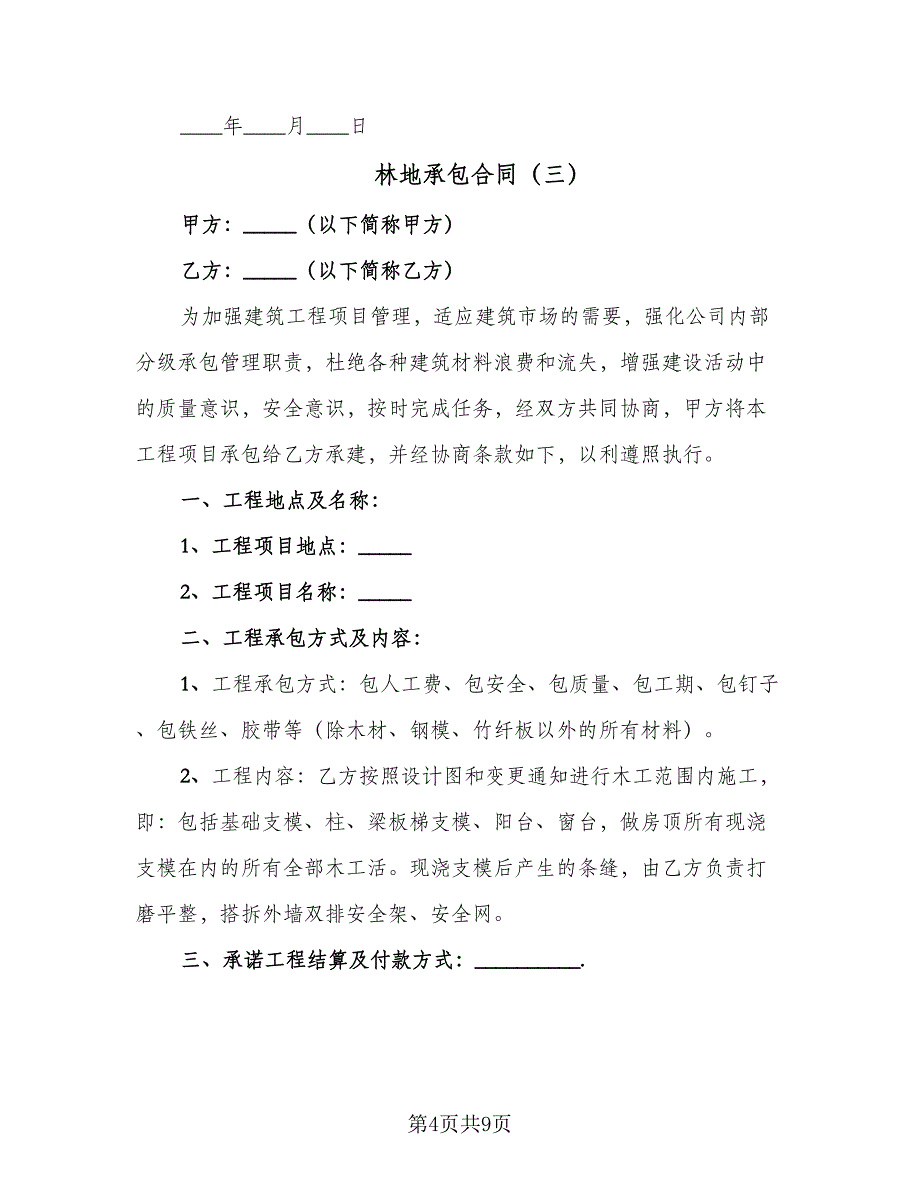 ____年____月____日
林地承包合同（三）
甲方：_____（以下简称甲方）
乙方：_____（以下简称乙方）
为加强建筑工程项目管理，适应建筑市场的需要，强化公司内部
分级承包管理职责，杜绝各种建筑材料浪费和流失，增强建设活动中
的质量意识，安全意识，按时完成任务，经双方共同协商，甲方将本
工程项目承包给乙方承建，并经协商条款如下，以利遵照执行。
一、工程地点及名称：
1、工程项目地点：_____
2、工程项目名称：_____
二、工程承包方式及内容：
1、工程承包方式：包人工费、包安全、包质量、包工期、包钉子
、包铁丝、胶带等（除木材、钢模、竹纤板以外的所有材料）。
2、工程内容：乙方按照设计图和变更通知进行木工范围内施工，
即：包括基础支模、柱、梁板梯支模、阳台、窗台，做房顶所有现浇
支模在内的所有全部木工活。现浇支模后产生的条缝，由乙方负责打
磨平整，搭拆外墙双排安全架、安全网。
三、承诺工程结算及付款方式：__________.
第4页共9页